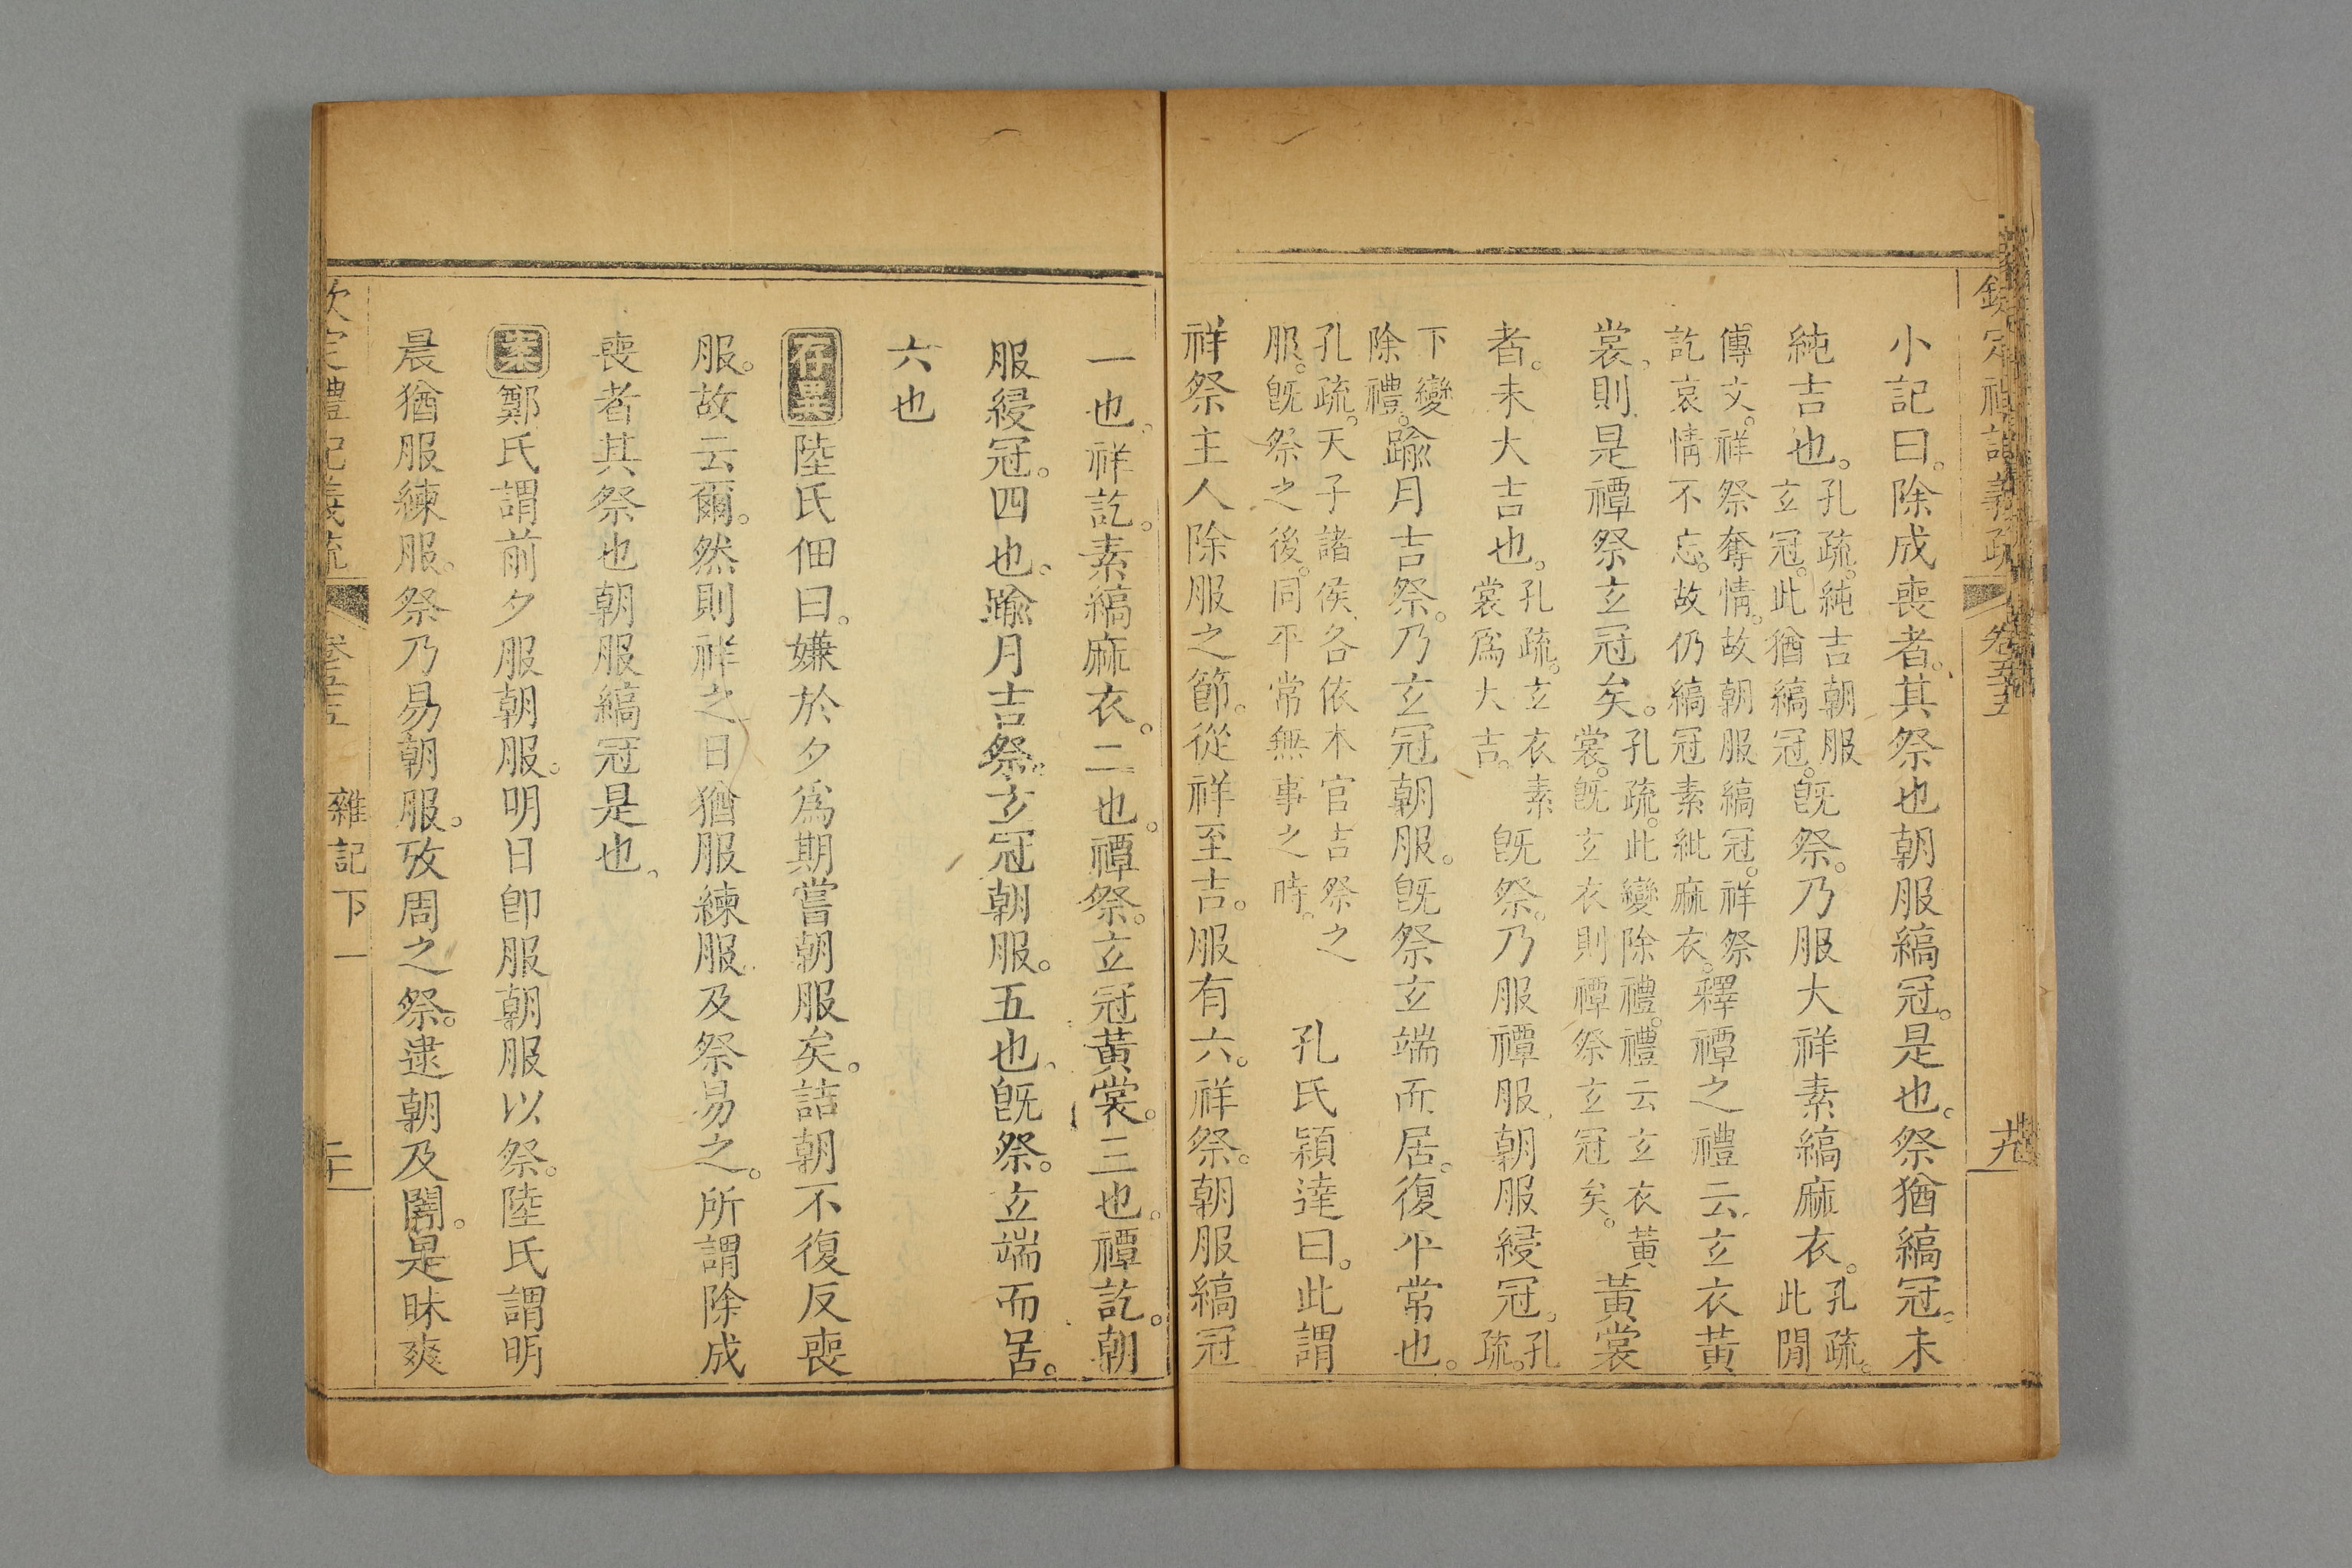 欽定禮記義疏 卷五十五
小記曰。除成喪者。其祭也朝服縞冠。是也。祭猶縞冠。未
純吉也。孔疏。純吉朝服玄冠。此猶縞冠。旣祭。乃服大祥素縞麻衣。孔疏。此閒
傳文。祥祭奪情。故朝服縞冠。祥祭訖哀情不忘。故仍縞冠素紕麻衣。釋禫之禮云。玄衣黃
裳。則是禫祭玄冠矣。孔疏。此變除禮。禮云玄衣黃裳。旣玄衣則禫祭玄冠矣。黃裳
者。未大吉也。孔疏。玄衣素裳爲大吉。旣祭。乃服禫服。朝服綅冠。孔疏。
下變除禮。踰月吉祭。乃玄冠朝服。旣祭玄端而居。復平常也。
孔疏。天子諸侯各依本官吉祭之服。旣祭之後。同平常無事之時。孔氏穎達曰。此謂
祥祭主人除服之節。從祥至吉。服有六。祥祭。朝服縞冠
一也。祥訖。素縞麻衣。二也。禫祭。玄冠黃裳。三也。禫訖。朝
服綅冠。四也。踰月吉祭。玄冠朝服。五也。旣祭。玄端而居。
六也
存異 陸氏佃曰。嫌於夕爲期嘗朝服矣。詰朝不復反喪
服。故云爾。然則祥之日猶服練服。及祭易之。所謂除成
喪者其祭也朝服縞冠是也。
案 鄭氏謂前夕服朝服。明日卽服朝服以祭。陸氏謂明
晨猶服練服。祭乃易朝服。攷周之祭。逮朝及闇。是昧爽
欽定禮記義疏 卷五十五 雜記下一